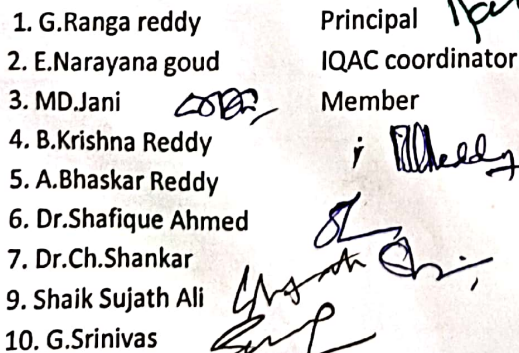 1. G.Ranga reddy Principal
2. E.Narayana goud IQAC coordinator
3. MD.Jani Member
4. B.Krishna Reddy
5. A.Bhaskar Reddy
6. Dr.Shafique Ahmed
7. Dr.Ch.Shankar
9. Shaik Sujath Ali
10. G.Srinivas